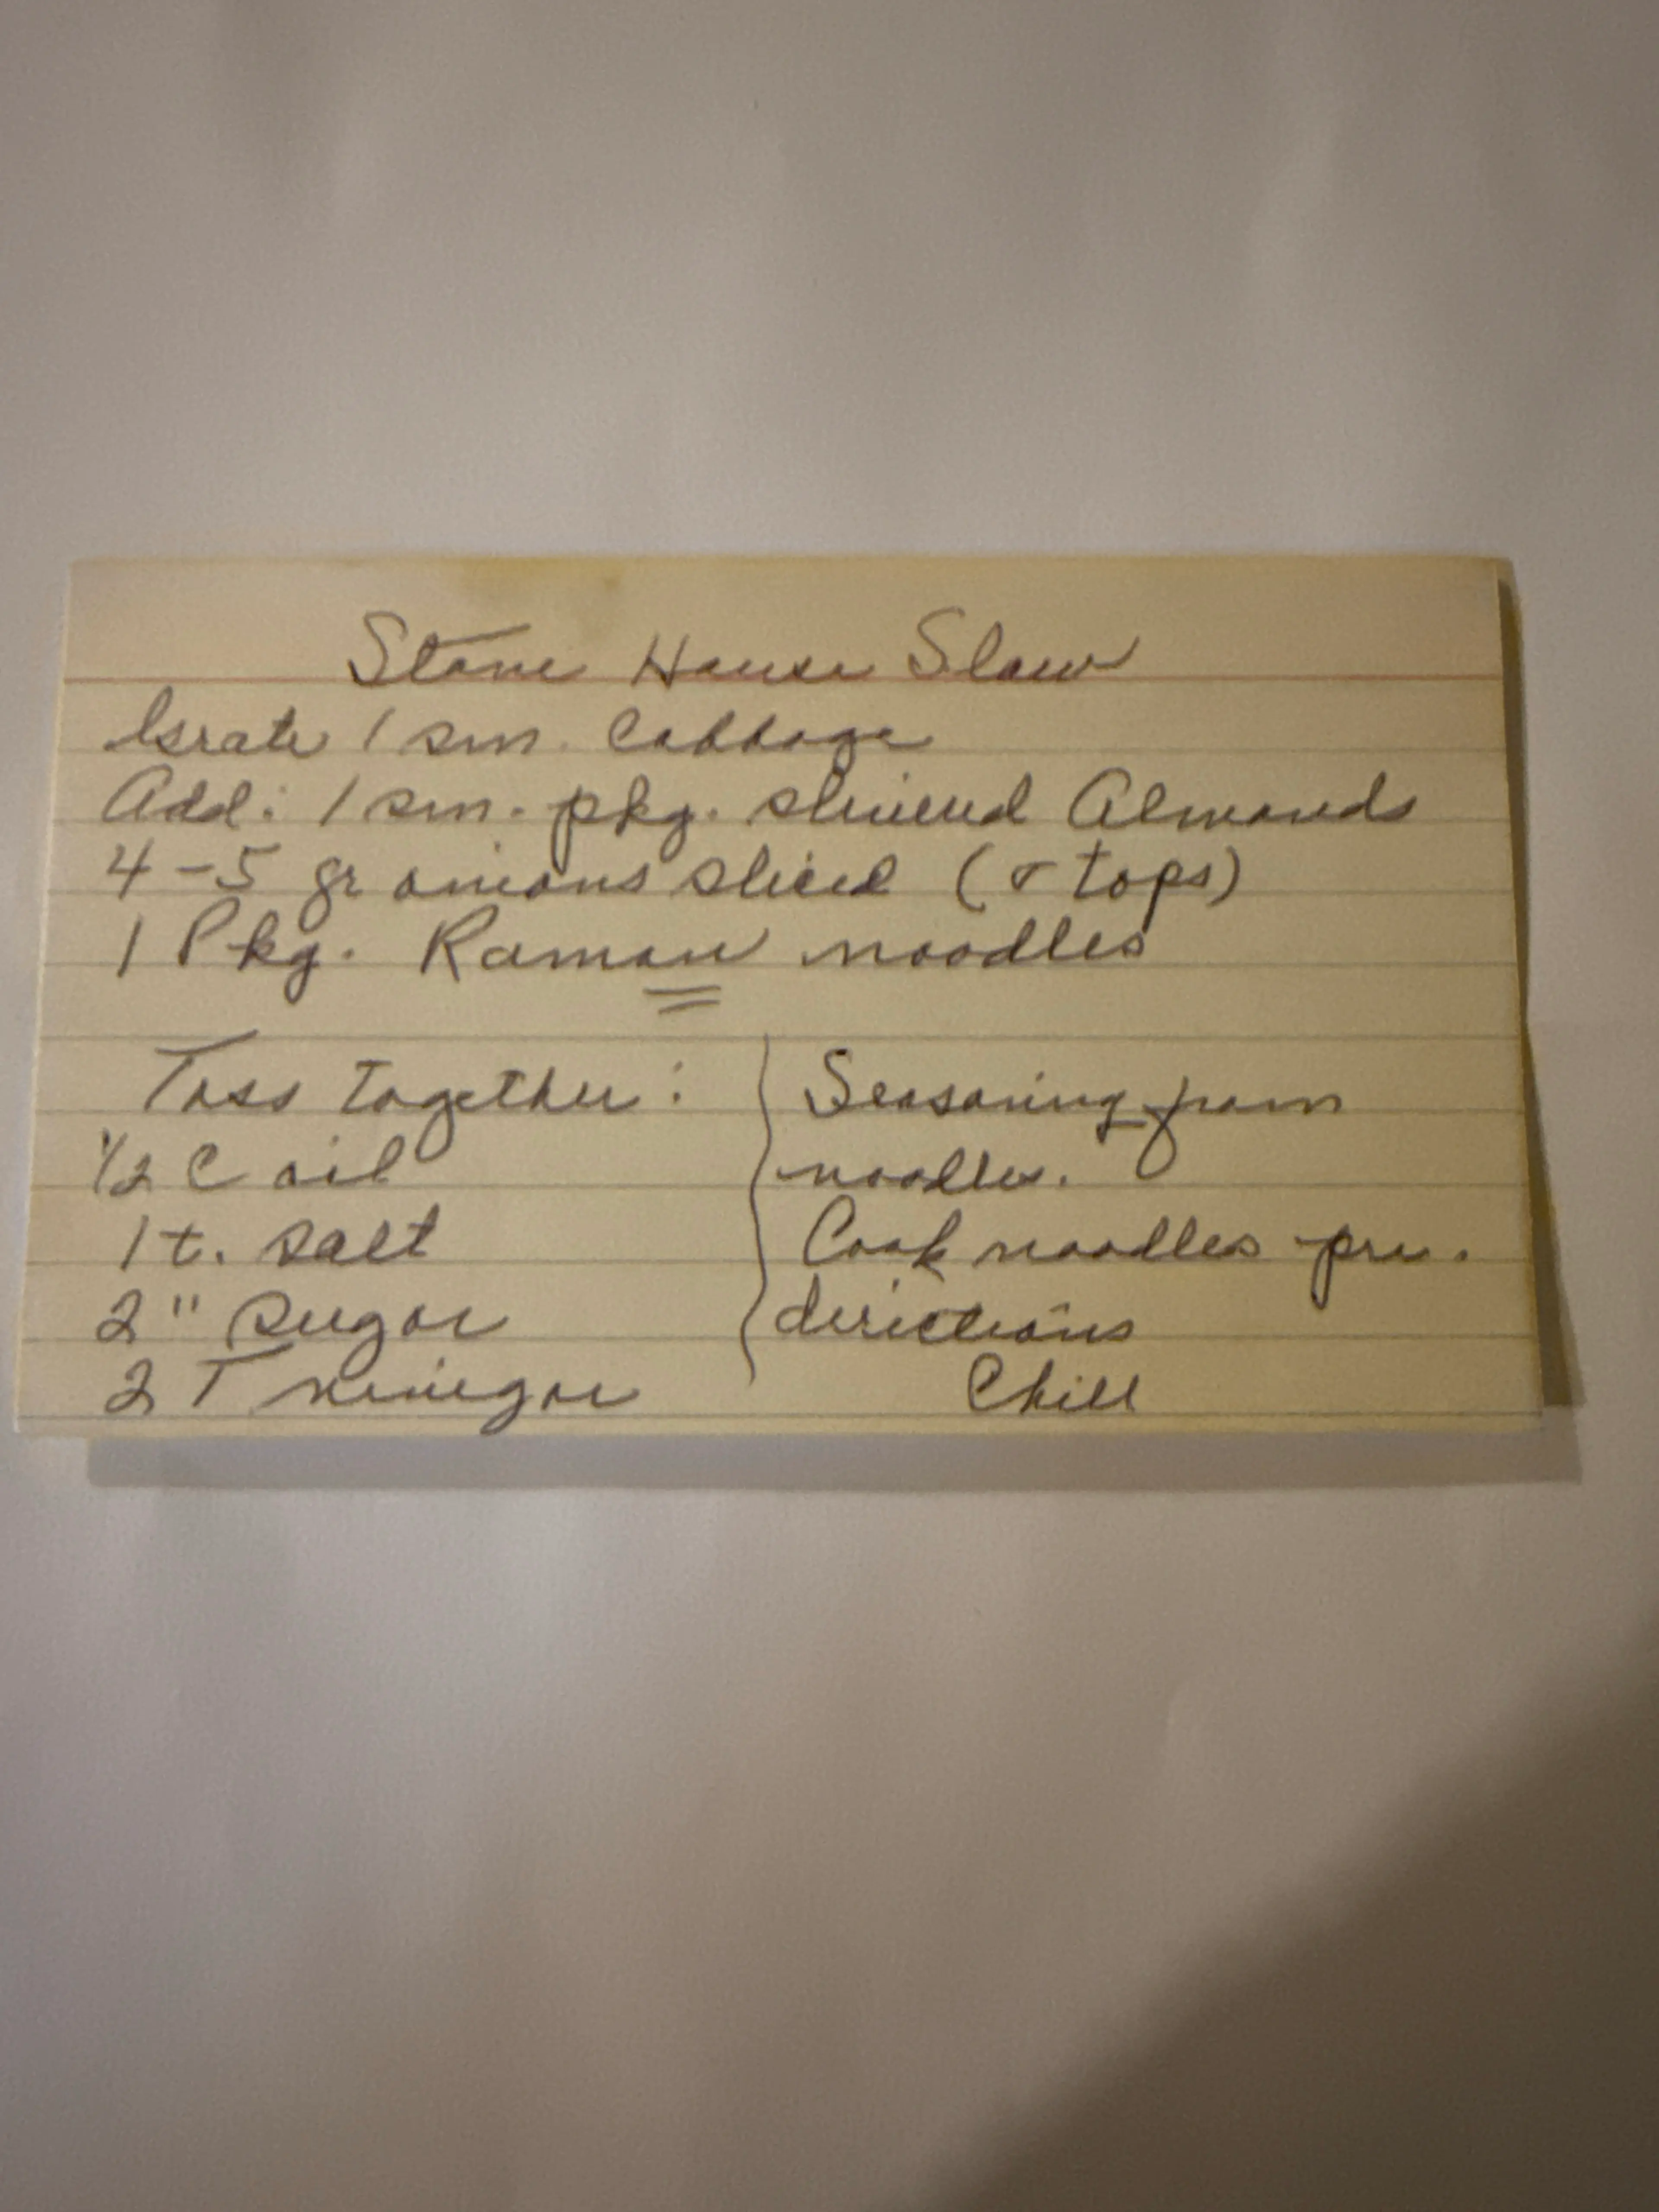 Stone House Slaw
Grate 1 sm. Cabbage
Add: 1 sm. pkg. slivered Almonds
4-5 gr onions sliced (& tops)
1 Pkg. Raman noodles
Toss together:
1/2 C oil
1 t. salt
2 " sugar
2 T vinegar
Seasoning from
noodles.
Cook noodles pre.
directions
Chill